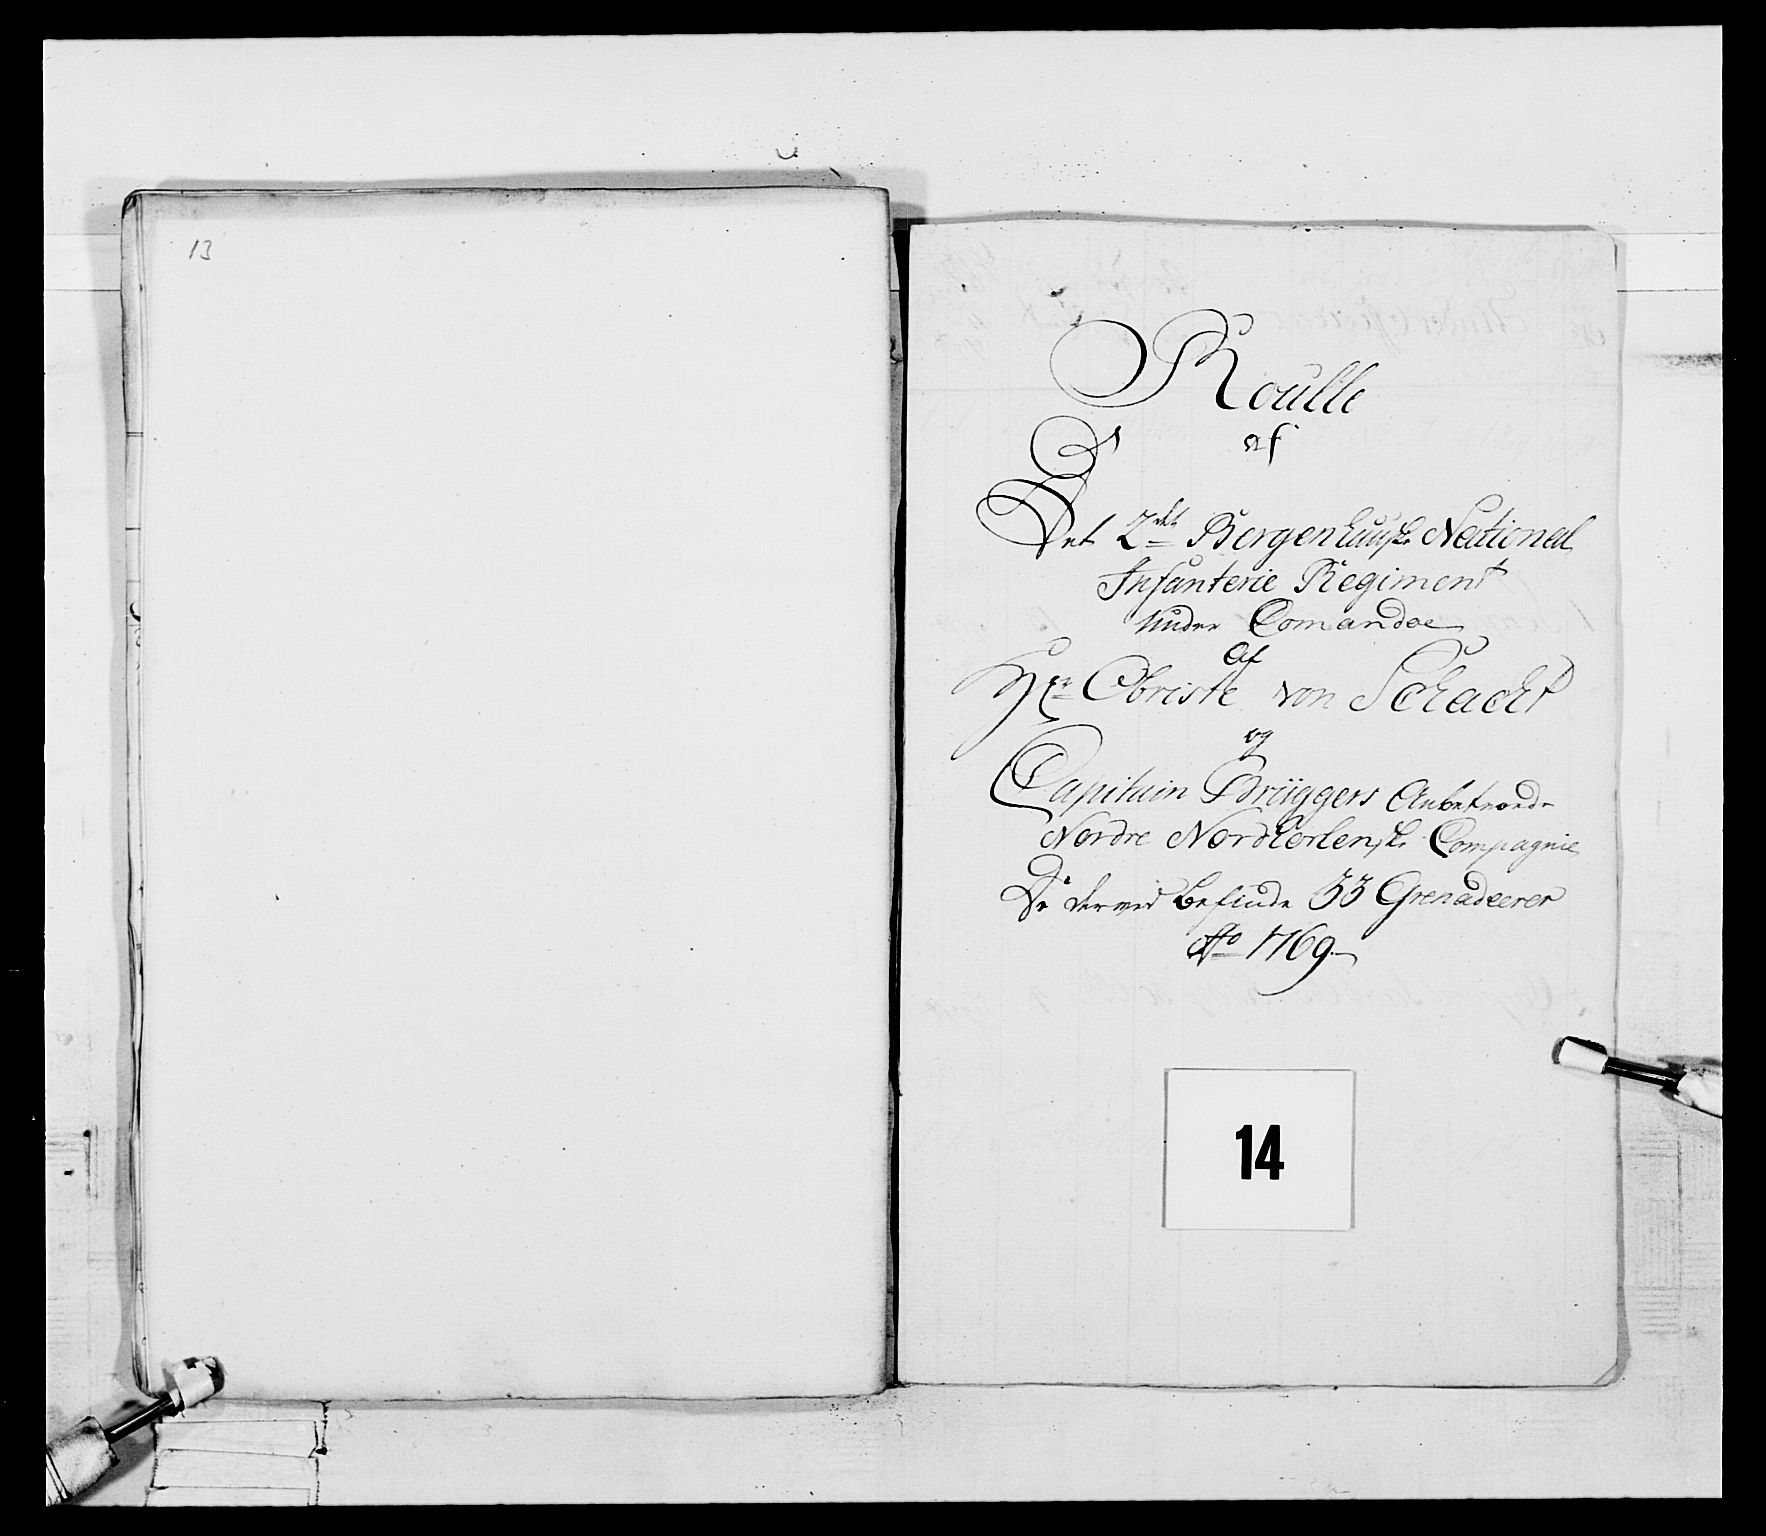 13
Roulle
af
Det 2det Bergenhuuske National
Infanterie Regiment
Under Comandoe
af
Hr Obriste von Schacht
og
Capitain Brüggers Anbetroede
Nordre Nordhorlenske Compagnie
De derved befinde 33 Grenadeerer
Ao 1769.
14